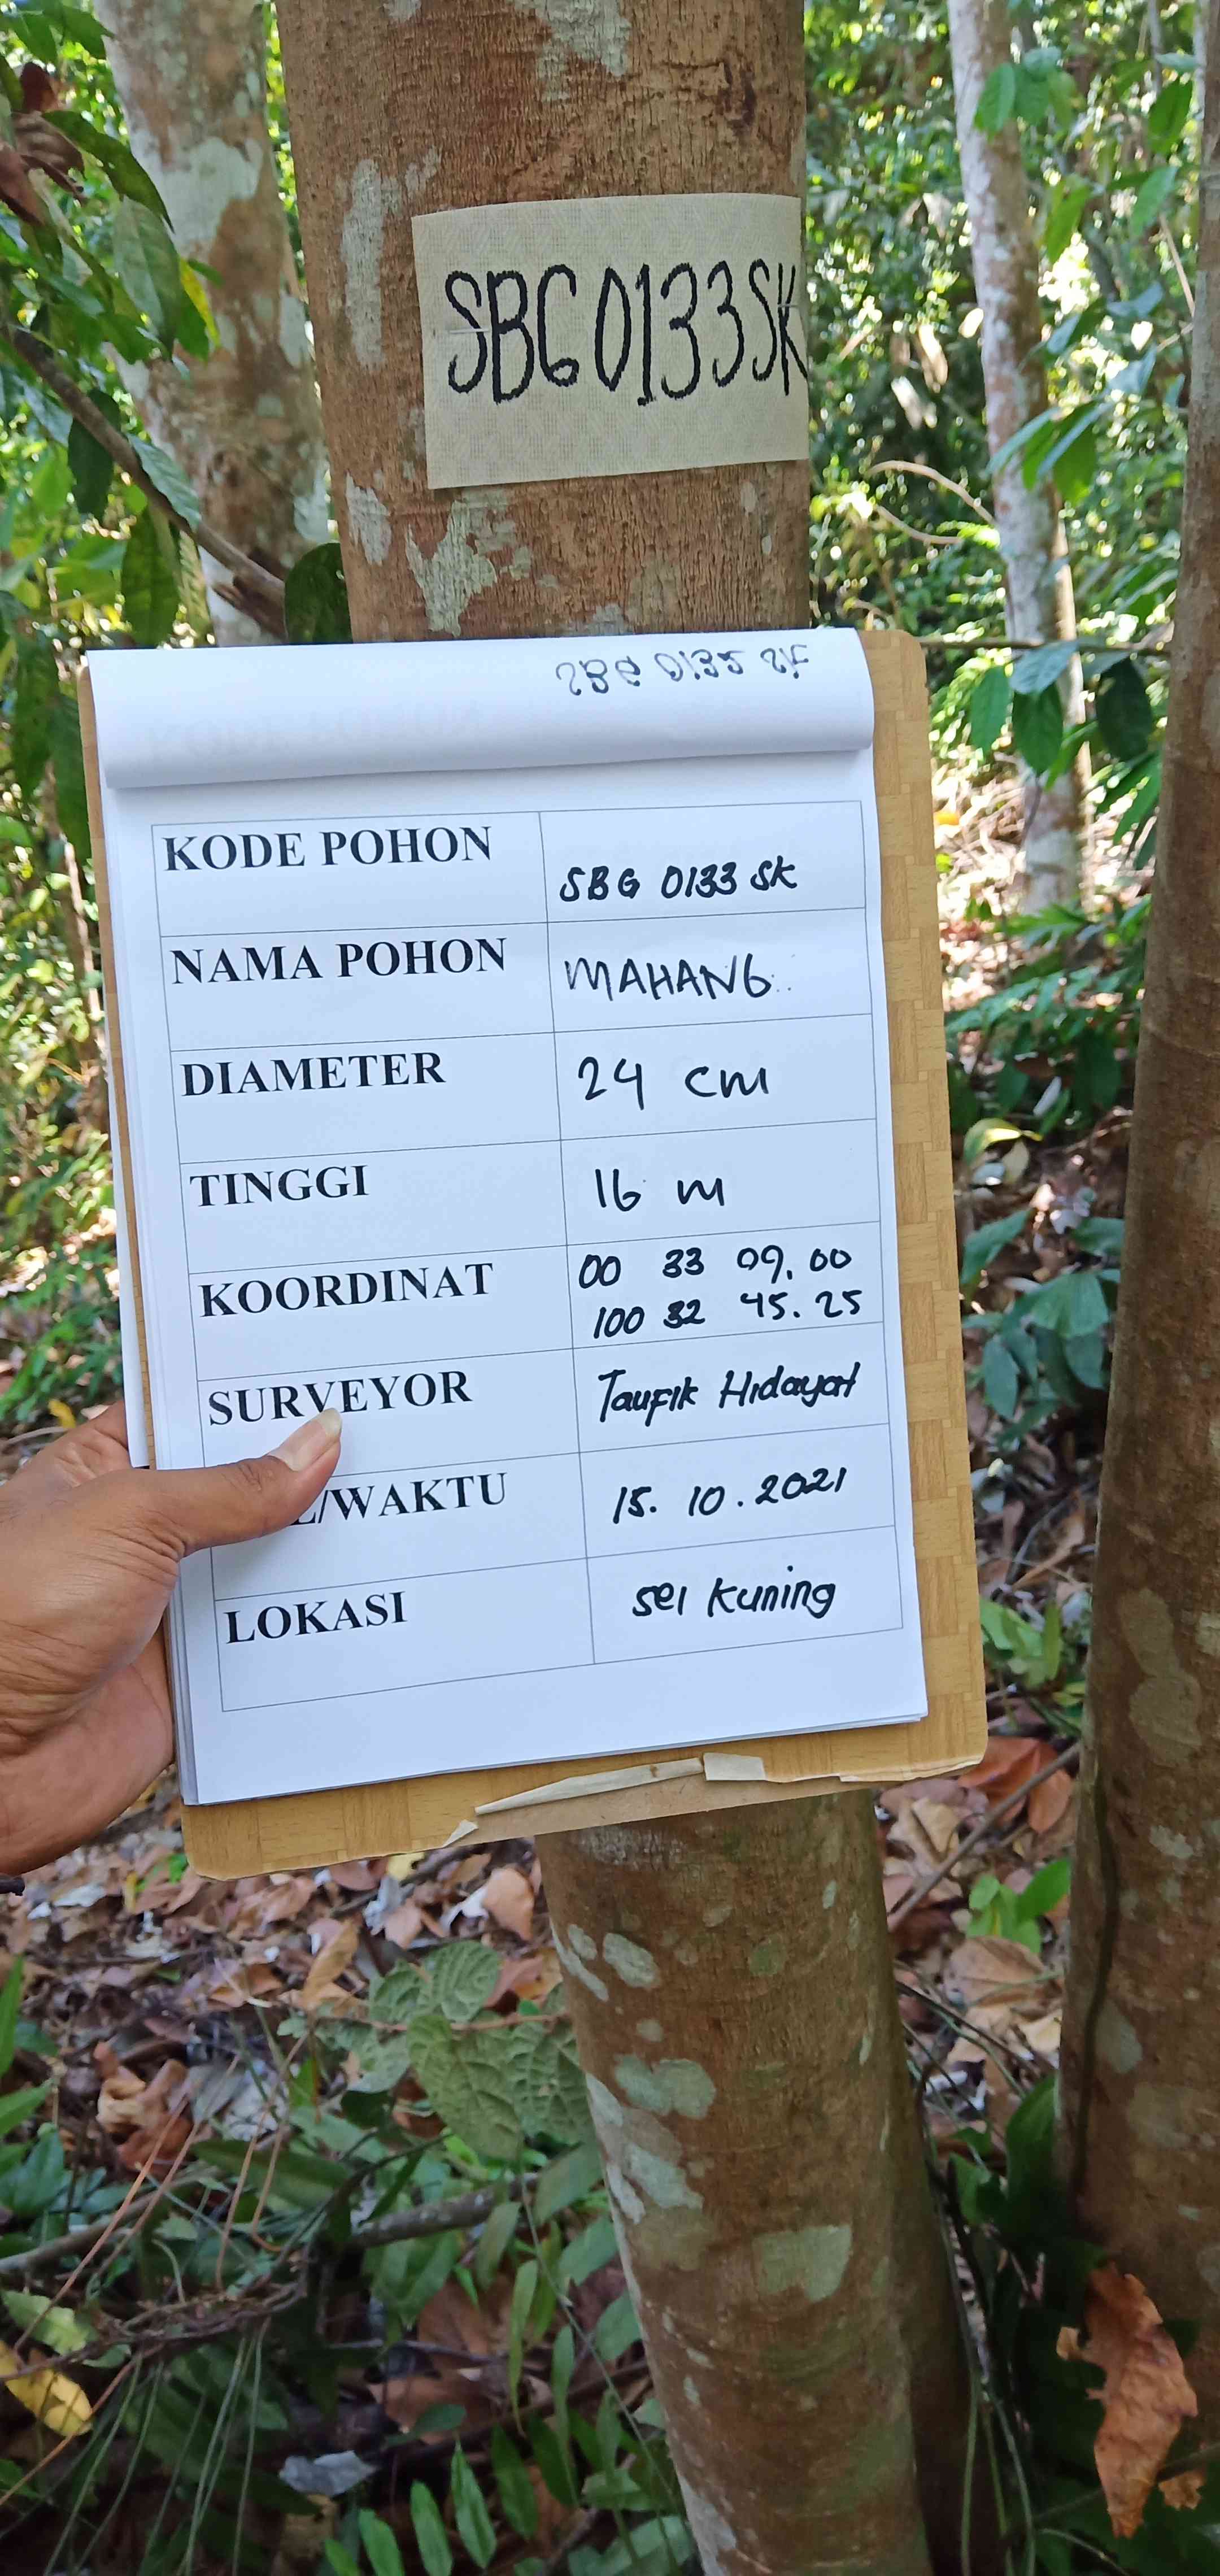 SBG 0133 SK
KODE POHON SBG 0133 SK
NAMA POHON MAHANG
DIAMETER 24 cm
TINGGI 16 m
KOORDINAT 00 33 09.00
100 32 45.25
SURVEYOR Taufik Hidayat
/WAKTU 15.10.2021
LOKASI sei Kuning